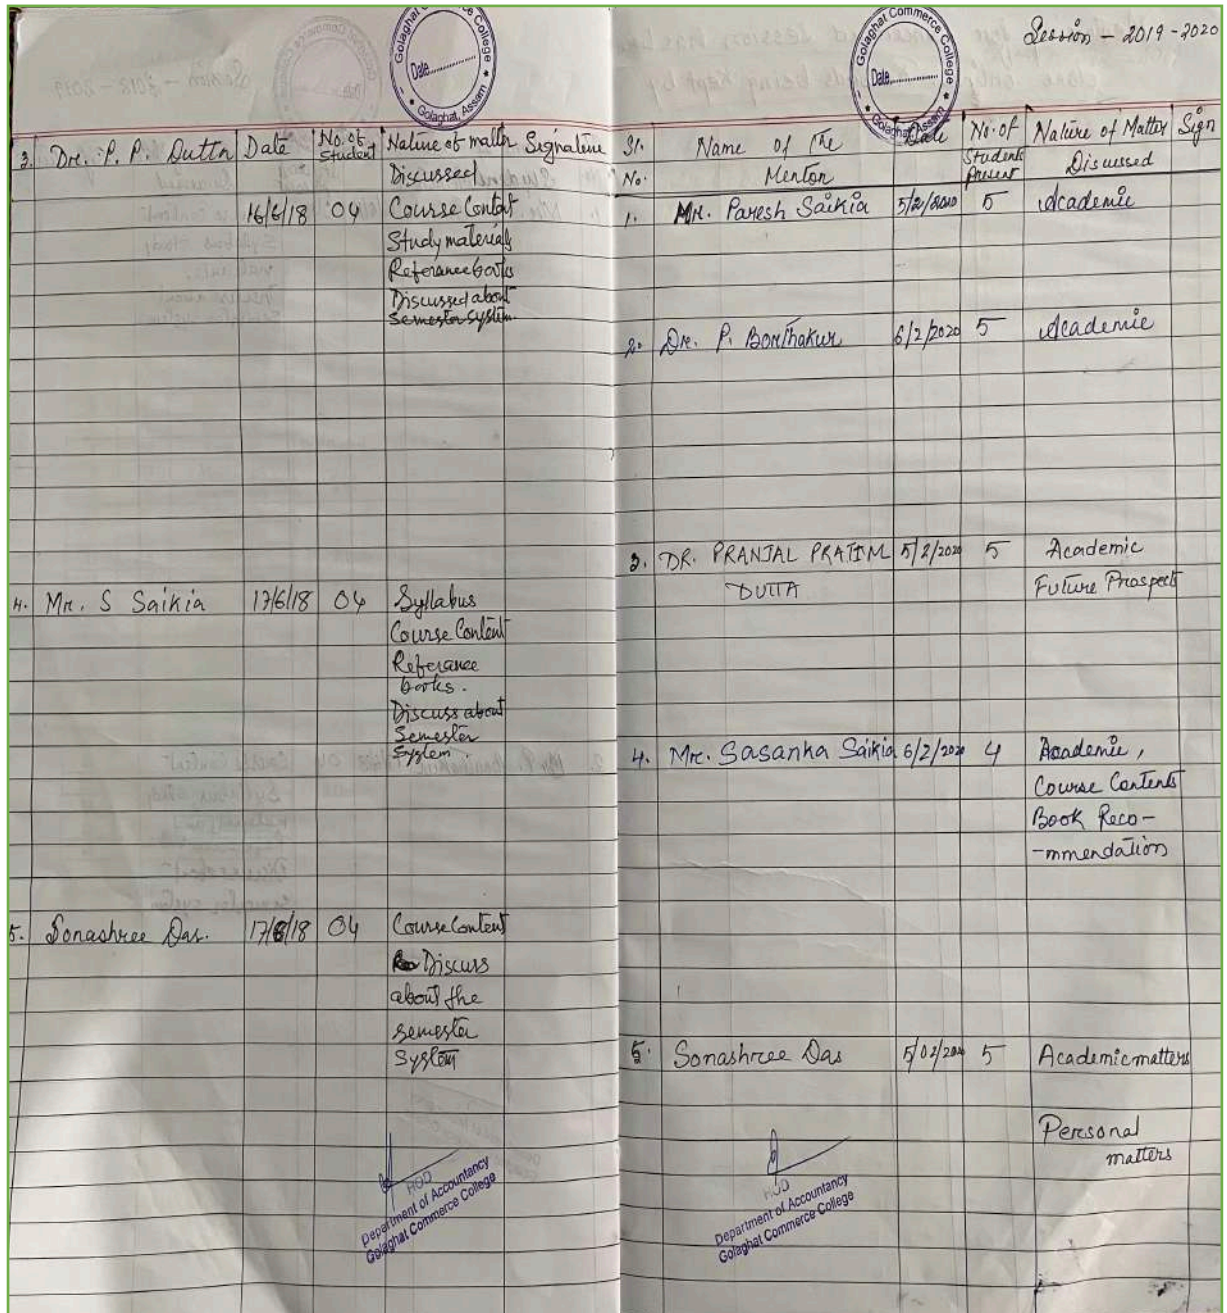 Golaghat Commerce College
Date
Golaghat, Assam
3. Dr. P. P. Dutta Date No. of Student Nature of matter Discussed Signature
16/6/18 04 Course Content
Study materials
Reference books
Discussed about
Semester system.
4. Mr. S Saikia 17/6/18 04 Syllabus
Course Content
Referance
books.
Discuss about
Semester
System.
5. Sonashree Das. 17/6/18 04 Course Content
Discuss
about the
semester
System
HOD
Department of Accountancy
Golaghat Commerce College
Golaghat Commerce College
Date
Golaghat, Assam
Session - 2019-2020
Sl. No. Name of the Mentor Date No. of Students Present Nature of Matter Discussed Sign
1. Mr. Paresh Saikia 5/2/2020 5 Academic
2. Dr. P. Borthakur 6/2/2020 5 Academic
3. DR. PRANJAL PRATIM 5/2/2020 5 Academic
DUTTA Future Prospect
4. Mr. Sasanka Saikia 6/2/2020 4 Academic,
Course Contents
Book Reco-
-mmendation
5. Sonashree Das 5/02/2020 5 Academic matters
Personal
matters
HOD
Department of Accountancy
Golaghat Commerce College